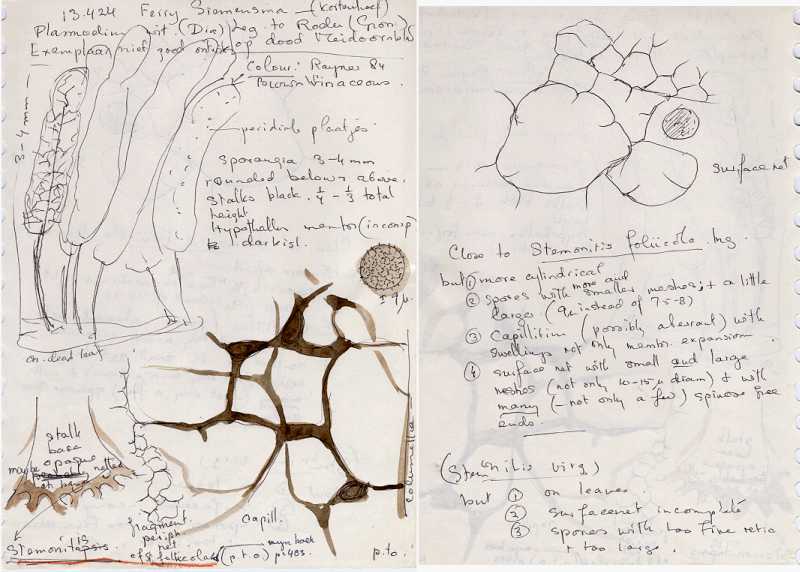 13.424 Ferry Siemensma - (Kortenhoef)
Plasmodium wit. (Dia) leg. to Roder (Gron)
Exemplaar niet good op dood Meidoornbl
Colour: Rayner 84
Brown Vinaceous.
3-4 mm
peridial plaatjes
Sporangia 3-4 mm
rounded below & above.
Stalks black. 1/4 - 1/3 total
height
Hypothallus membr (inconsp)
darkish.
± 9 µ.
on dead leaf
stalk
base
opaque
maybe
netted
not
Stemonitopsis.
is
fragment
periph
net
of S. foliicola
Capill.
(p.t.o) myn boek
p 403.
Columella
p.t.o.
surface net
Close to Stemonitis foliicola Ing
but ① more cylindrical
② spores with more and
smaller meshes; + a little
larger (9µ instead of 7.5-8)
③ Capillitium (possibly aberrant) with
swellings not only membr. expansion.
④ surface net with small and large
meshes (not only 10-15 µ diam) & with
many (- not only a few) spinose free
ends.
(Stemonitis virg)
but ① on leaves
② surfacenet incomplete
③ spores with too fine retic
+ too large.